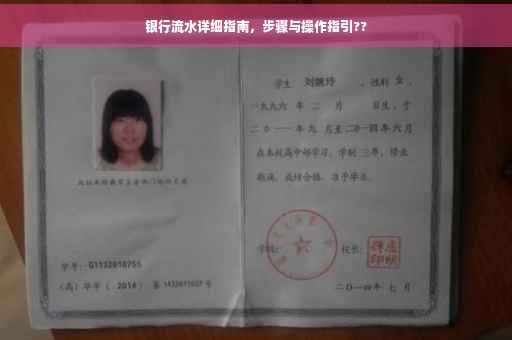 银行流水详细指南，步骤与操作指引??
学生 刘婉玲 ，性别 女 ，
一九九六 年 二 月 日生，于
二〇一一 年 九 月至 二〇一四 年 六 月
在本校高中部学习，学制 三 年，修业
期满，成绩合格，准予毕业。
学校： 校长：
学号：G1132010755
（高）毕字（ 2014 ）第 1432011027 号
二〇一四年 七 月